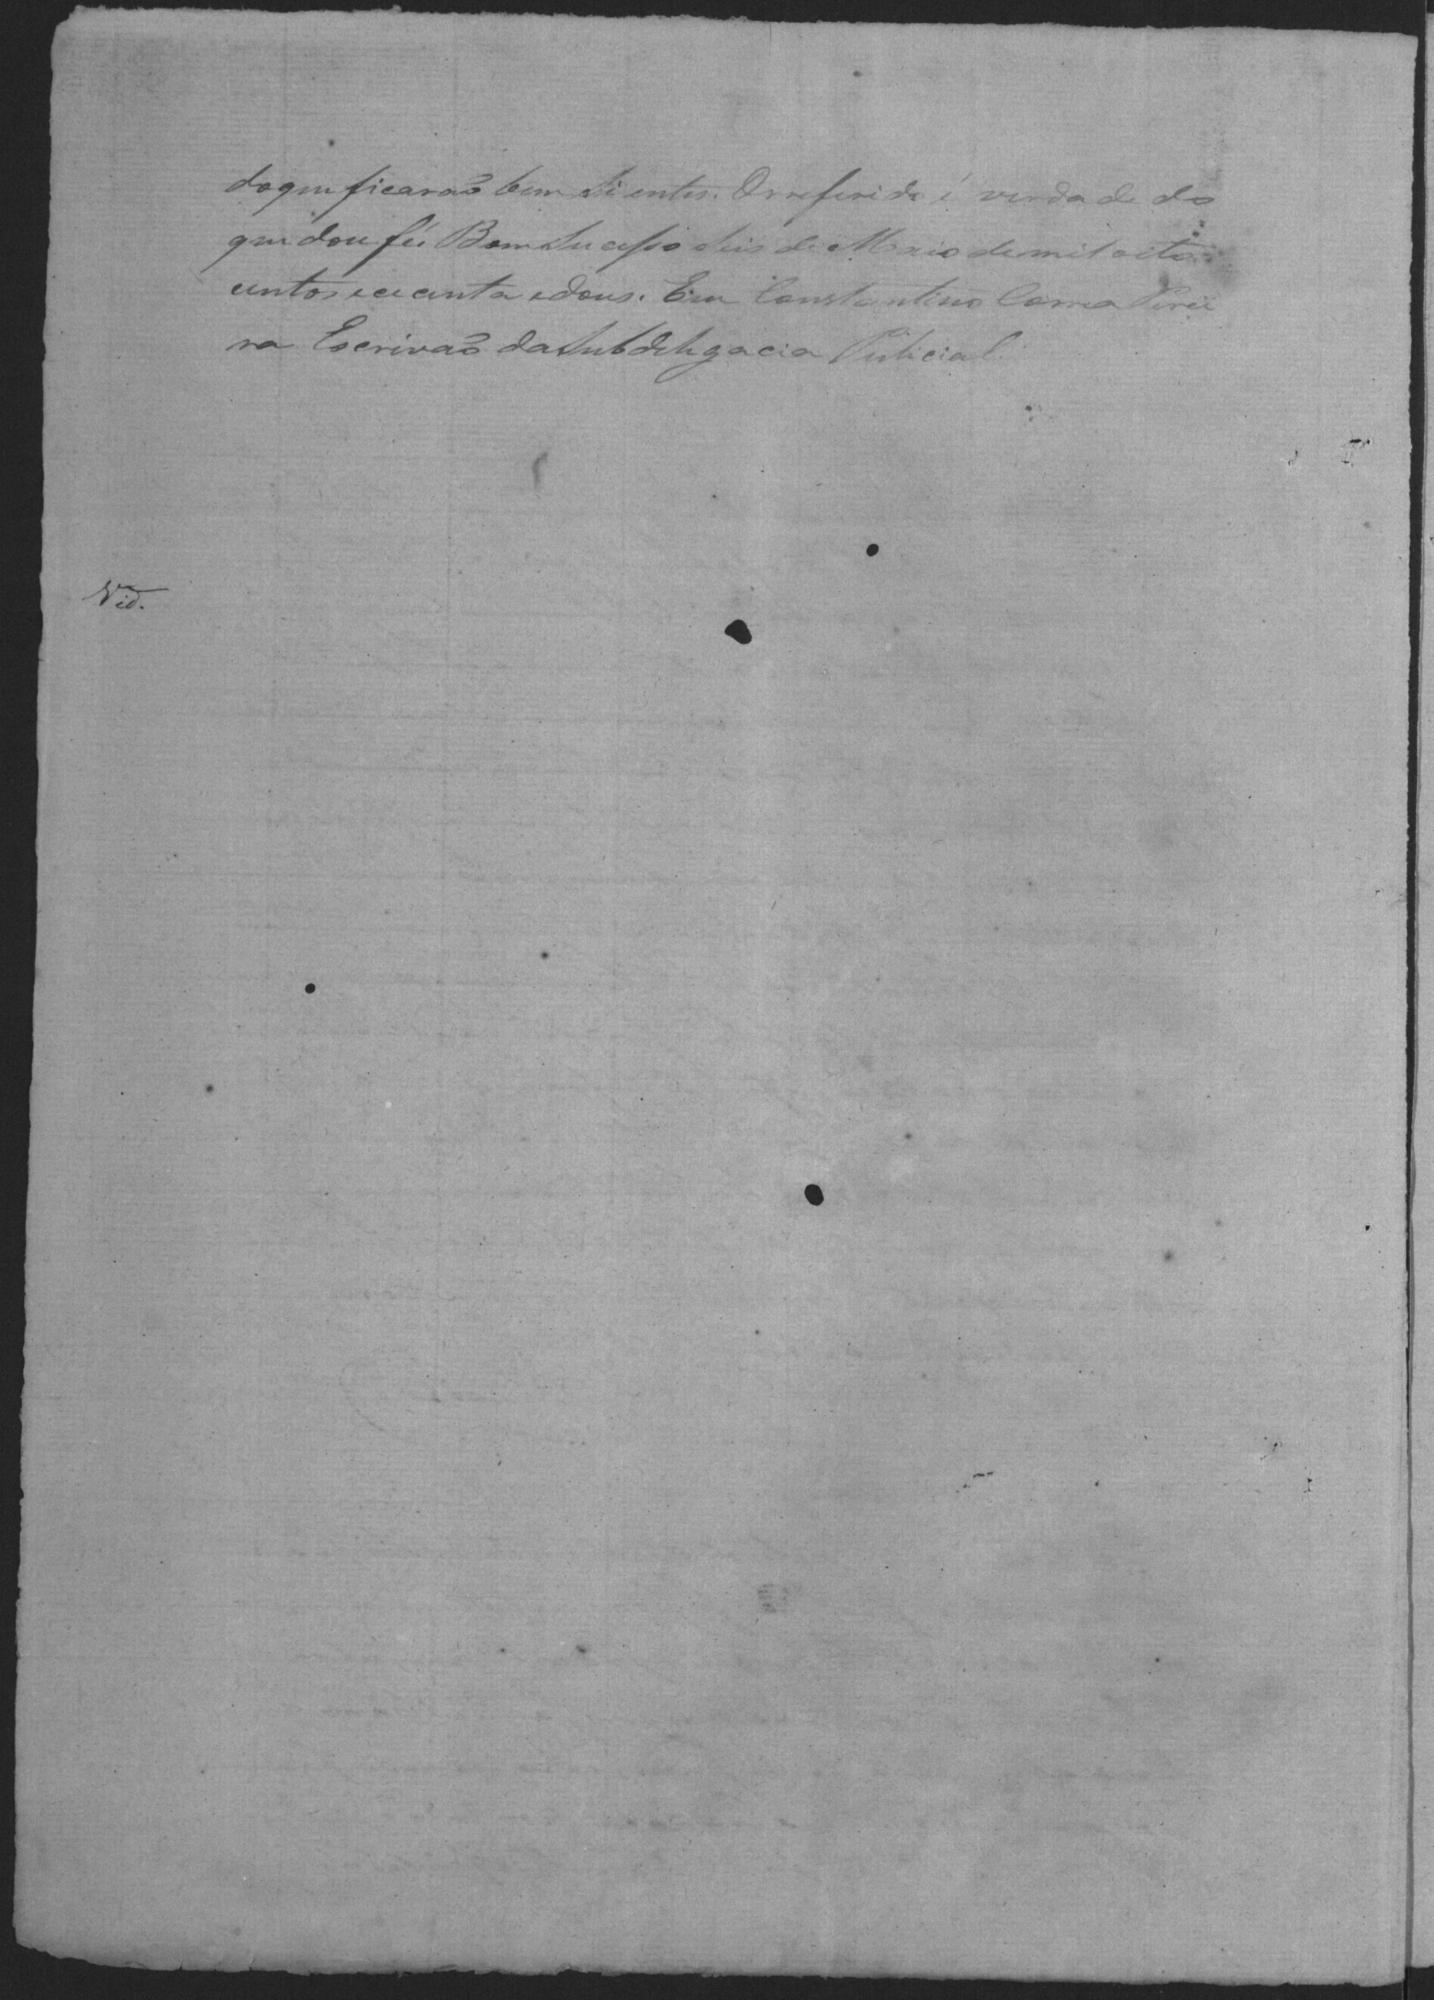 do que ficaraõ bem sientes. O referido é verdade do
que dou fé Bom Sucesso seis de Maio de mil oito
centos e cecenta e dous. Eu Constantino Correa Perei
ra Escrivaõ da Subdelegacia Policial
Vid.